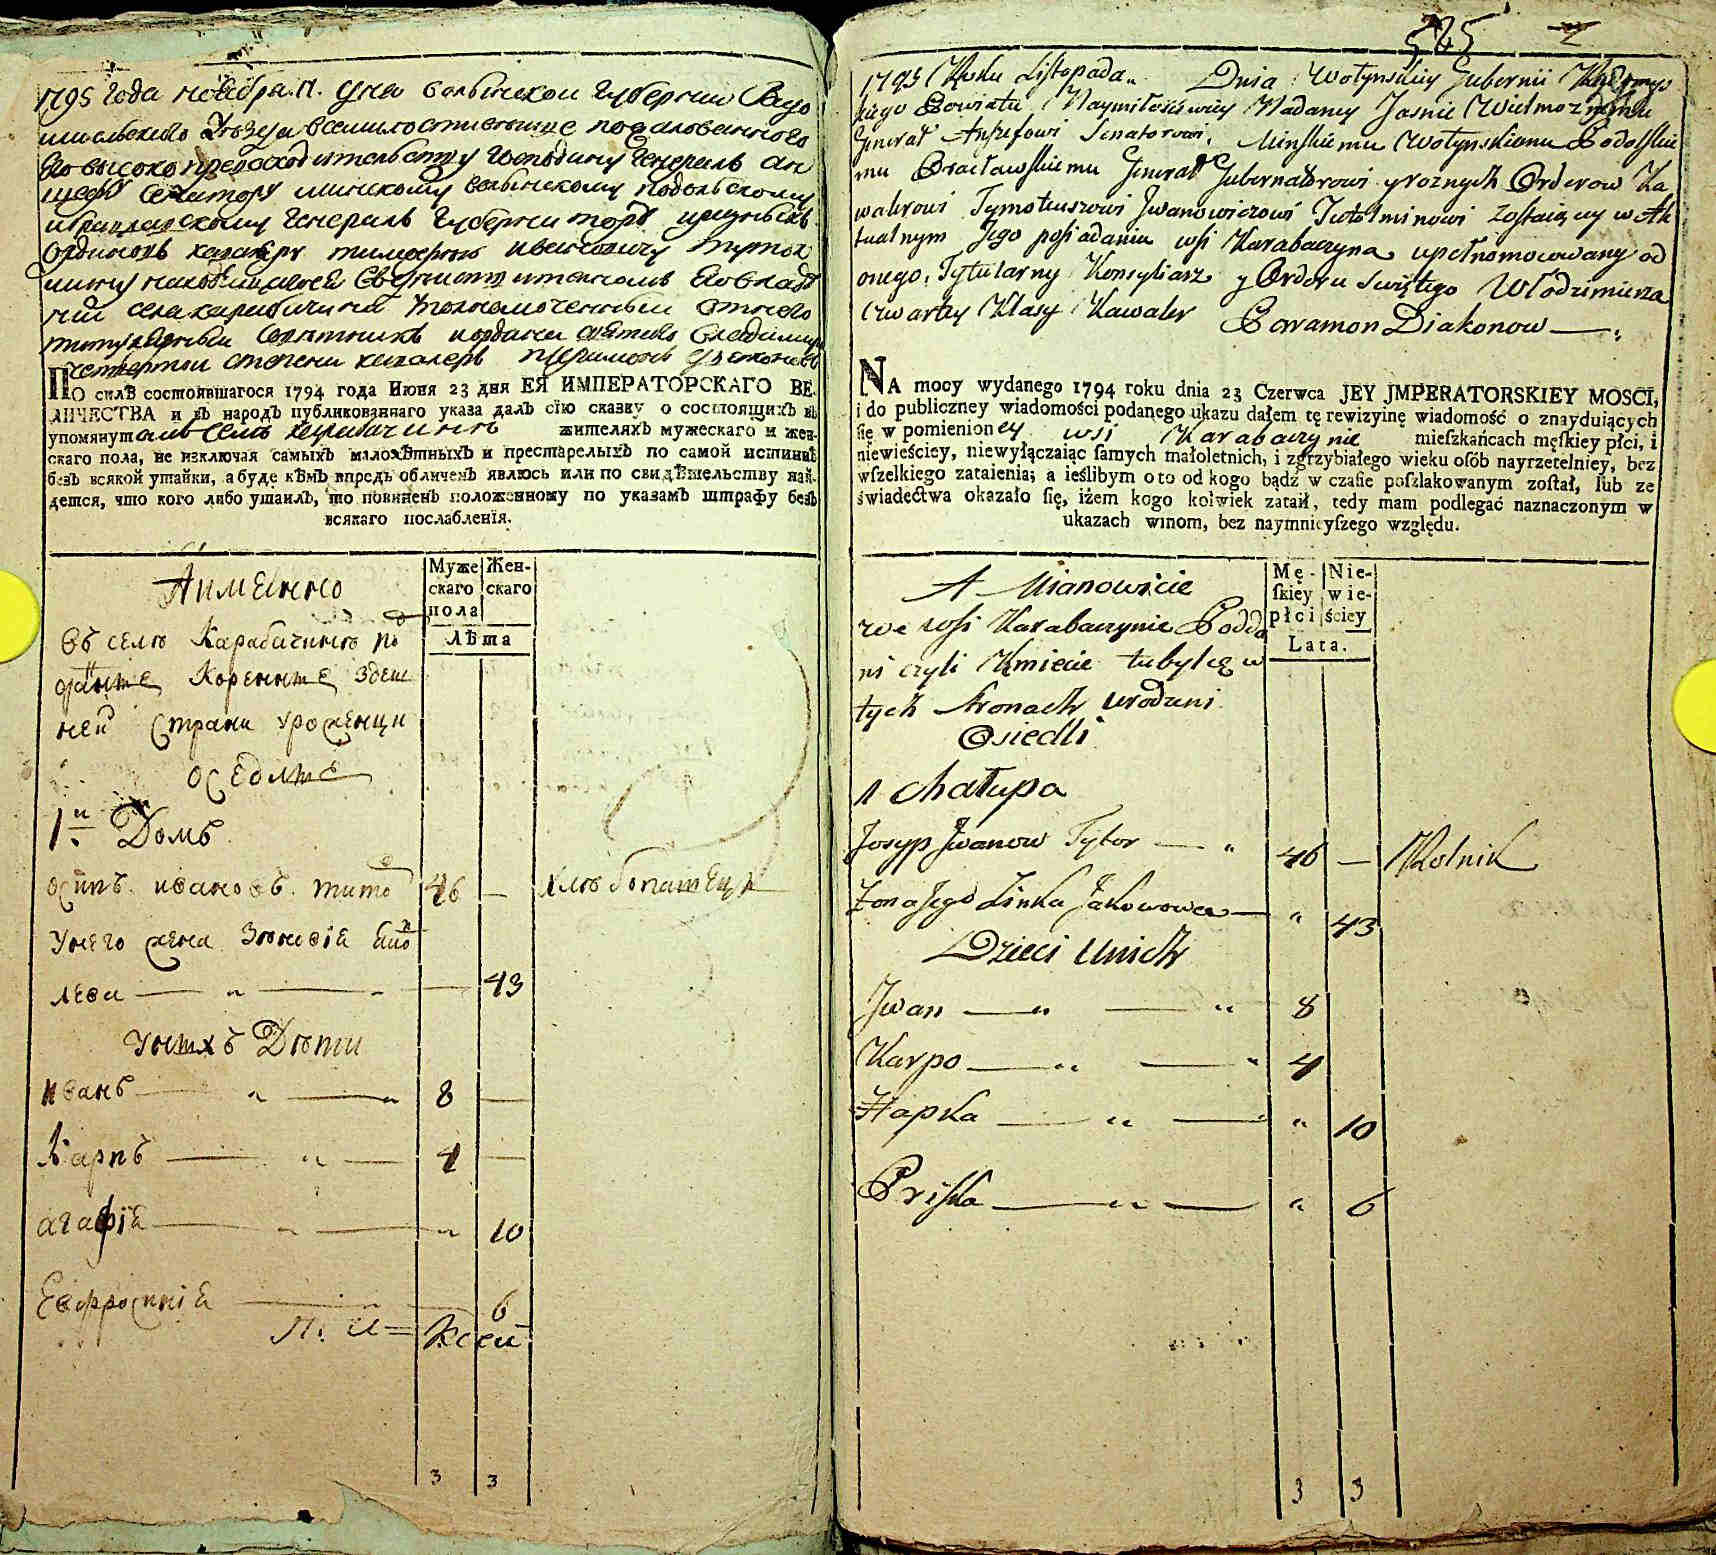 1795 года ноября 11. дня волынской губернии Радо
мысльского уезда всемилостивейше пожалованного
его высокопревосходительству господину генералъ ан
шефу сенатору минскому волынскому подольскому
и брацлавскому генералъ губернатору и разныхъ
орденовъ кавалеру тимофею ивановичу тутол
мину находящагося в действительномъ его владе
нии села карабачина уполномоченный отнего
титулярный советникъ и ордена святаго владимира
четвертой степени кавалеръ дьяконовъ
ПО силѣ состоявшагося 1794 года Июня 23 дня ЕЯ ИМПЕРАТОРСКАГО ВЕ-
ЛИЧЕСТВА и въ народъ публикованнаго указа далъ сїю сказку о состоящихъ въ
упомянутомъ селѣ карабачинѣ жителяхъ мужескаго и жен-
скаго пола, не изключая самыхъ малолѣтныхъ и престарелыхъ по самой истиннѣ
безъ всякой утайки, а буде кѣмъ впредь обличенъ явлюсь или по свидѣтельству най-
дется, что кого либо утаилъ, то повиненъ положенному по указамъ штрафу безъ
всякаго послабленїя.
Аименно
Муже
скаго
пола
Жен-
скаго
Лѣта
Въ селѣ Карабачинѣ по
даные Коренные Здеш
ней Страни Уроженци
оседлые
1й Домъ
осипъ ивановъ тито 46 — Хлебопашецъ
Унего жена Зѣновїя
лева — " — " — 43
Унихъ Дѣти
иванъ — " — " 8 —
Карпъ — " — 4 —
агафїя — " — " " 10
Евфросинїя — " — 6
3 3
525
1795 Roku Listopada „ Dnia Wołynskiey Gubernii Radomys
kiego Powiatu Naymiłościwiey Nadaney Jasnie Wielmożnemu
Generał Anszefowi Senatorowi, Minskiemu Wołynskiemu Podolskie
mu Bracławskiemu Generał Gubernatorowi y roznych Orderow Ka
walerowi Tymoteuszowi Jwanowiczowi Tutolminowi zostaiącey w Ak
tualnym Jego posiadaniu wsi Karabaczyna upełnomocowany od
onego, Tytularny Konsyliarz y Orderu swiętego Włodzimierza
Czwartey Klasy Kawaler Parramon Diakonow —
NA mocy wydanego 1794 roku dnia 23 Czerwca JEY JMPERATORSKIEY MOSCI,
i do publiczney wiadomości podanego ukazu dałem tę rewizyinę wiadomość o znayduiących
się w pomienioney wsi Karabaczynie mieſzkańcach męſkiey płci, i
niewieściey, niewyłączaiąc ſamych małoletnich, i zgrzybiałego wieku oſób nayrzetelniey, bez
wſzelkiego zataienia; a ieślibym o to od kogo bądź w czaſie poſzlakowanym zoſtał, lub ze
świadectwa okazało ſię, iżem kogo kolwiek zataił, tedy mam podlegać naznaczonym w
ukazach winom, bez naymnieyſzego względu.
A Mianowicie
Mę-
ſkiey
płci
Nie-
wie-
ściey
Lata.
we wsi Karabaczynie Podda
ni czyli Kmiecie tubylcę w
tych stronach urodzeni
Osiedli
1 Chałupa
Josyp Jwanow Tytor — " 46 — Rolnik
Żona Jego Zinka Jakowowa — " 43
Dzieci Unich
Jwan — " — " 8
Karpo — " — " 4
Hapka — " — " 10
Priska — " — " 6
3 3